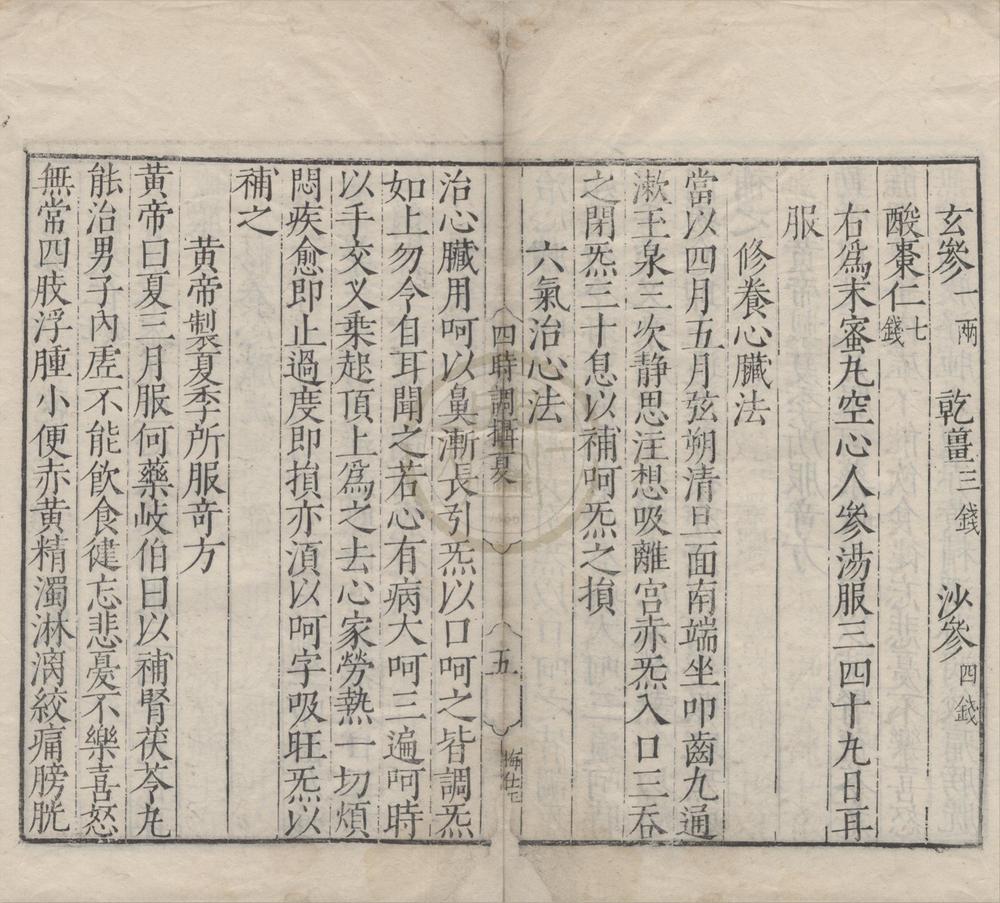 玄參一兩　乾薑三錢　沙參四錢
酸棗仁七錢
右爲末蜜丸空心人參湯服三四十九日再
服
修養心臟法
當以四月五月弦朔清旦面南端坐叩齒九通
漱玉泉三次静思注想吸離宮赤炁入口三吞
之閉炁三十息以補呵炁之損
六氣治心法
四時調攝夏
五
梅仕下
治心臟用呵以鼻漸長引炁以口呵之皆調炁
如上勿令自耳聞之若心有病大呵三遍呵時
以手交叉乗起頂上爲之去心家勞熱一切煩
悶疾愈即止過度即損亦湏以呵字吸旺炁以
補之
黃帝製夏季所服竒方
黃帝曰夏三月服何藥岐伯曰以補腎茯苓丸
能治男子内虗不能飲食健忘悲憂不樂喜怒
無常四肢浮腫小便赤黃精濁淋漓絞痛膀胱